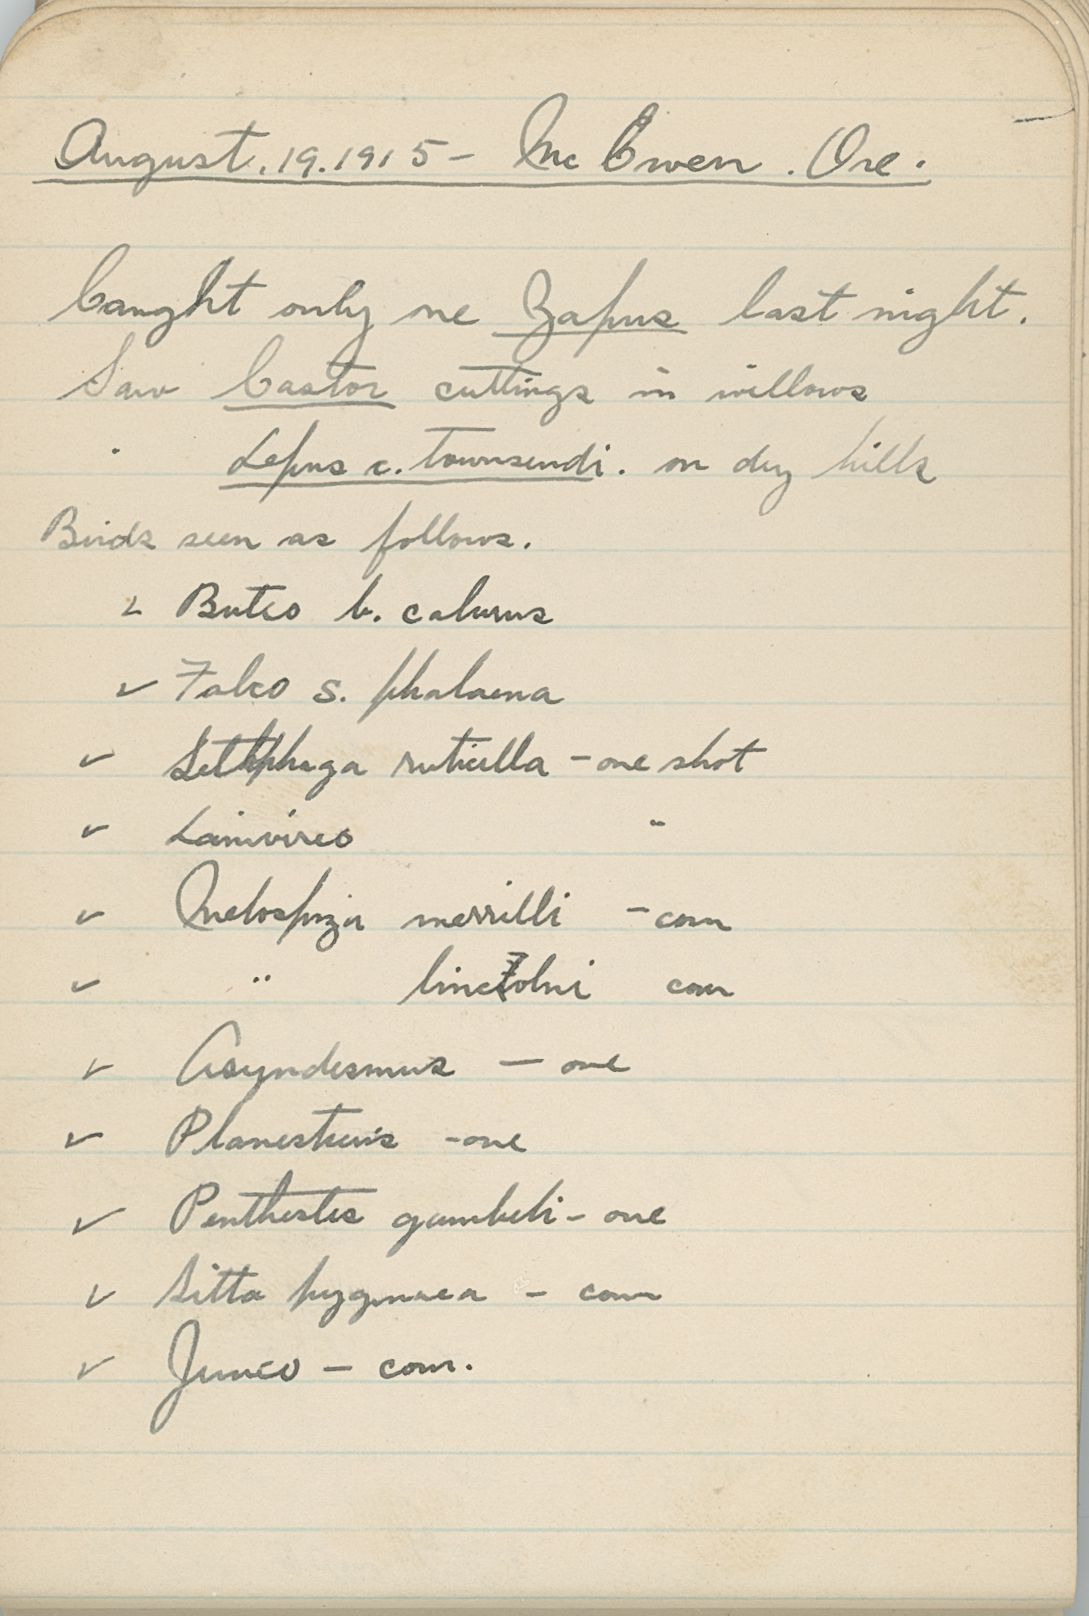 August. 19. 1915 - McEwen. Ore.
Caught only one Zapus last night.
Saw Castor cuttings in willows
" Lepus c. townsendi. on dry hills
Birds seen as follows.
✓ Buteo b. calurus
✓ Falco s. phalaena
✓ Setophaga ruticilla - one shot
✓ Lanivireo "
✓ Melospiza merrilli - com
✓ " lincolni com
✓ Asyndesmus - one
✓ Planesticus - one
✓ Penthestes gambeli - one
✓ Sitta pygmaea - com
✓ Junco - com.